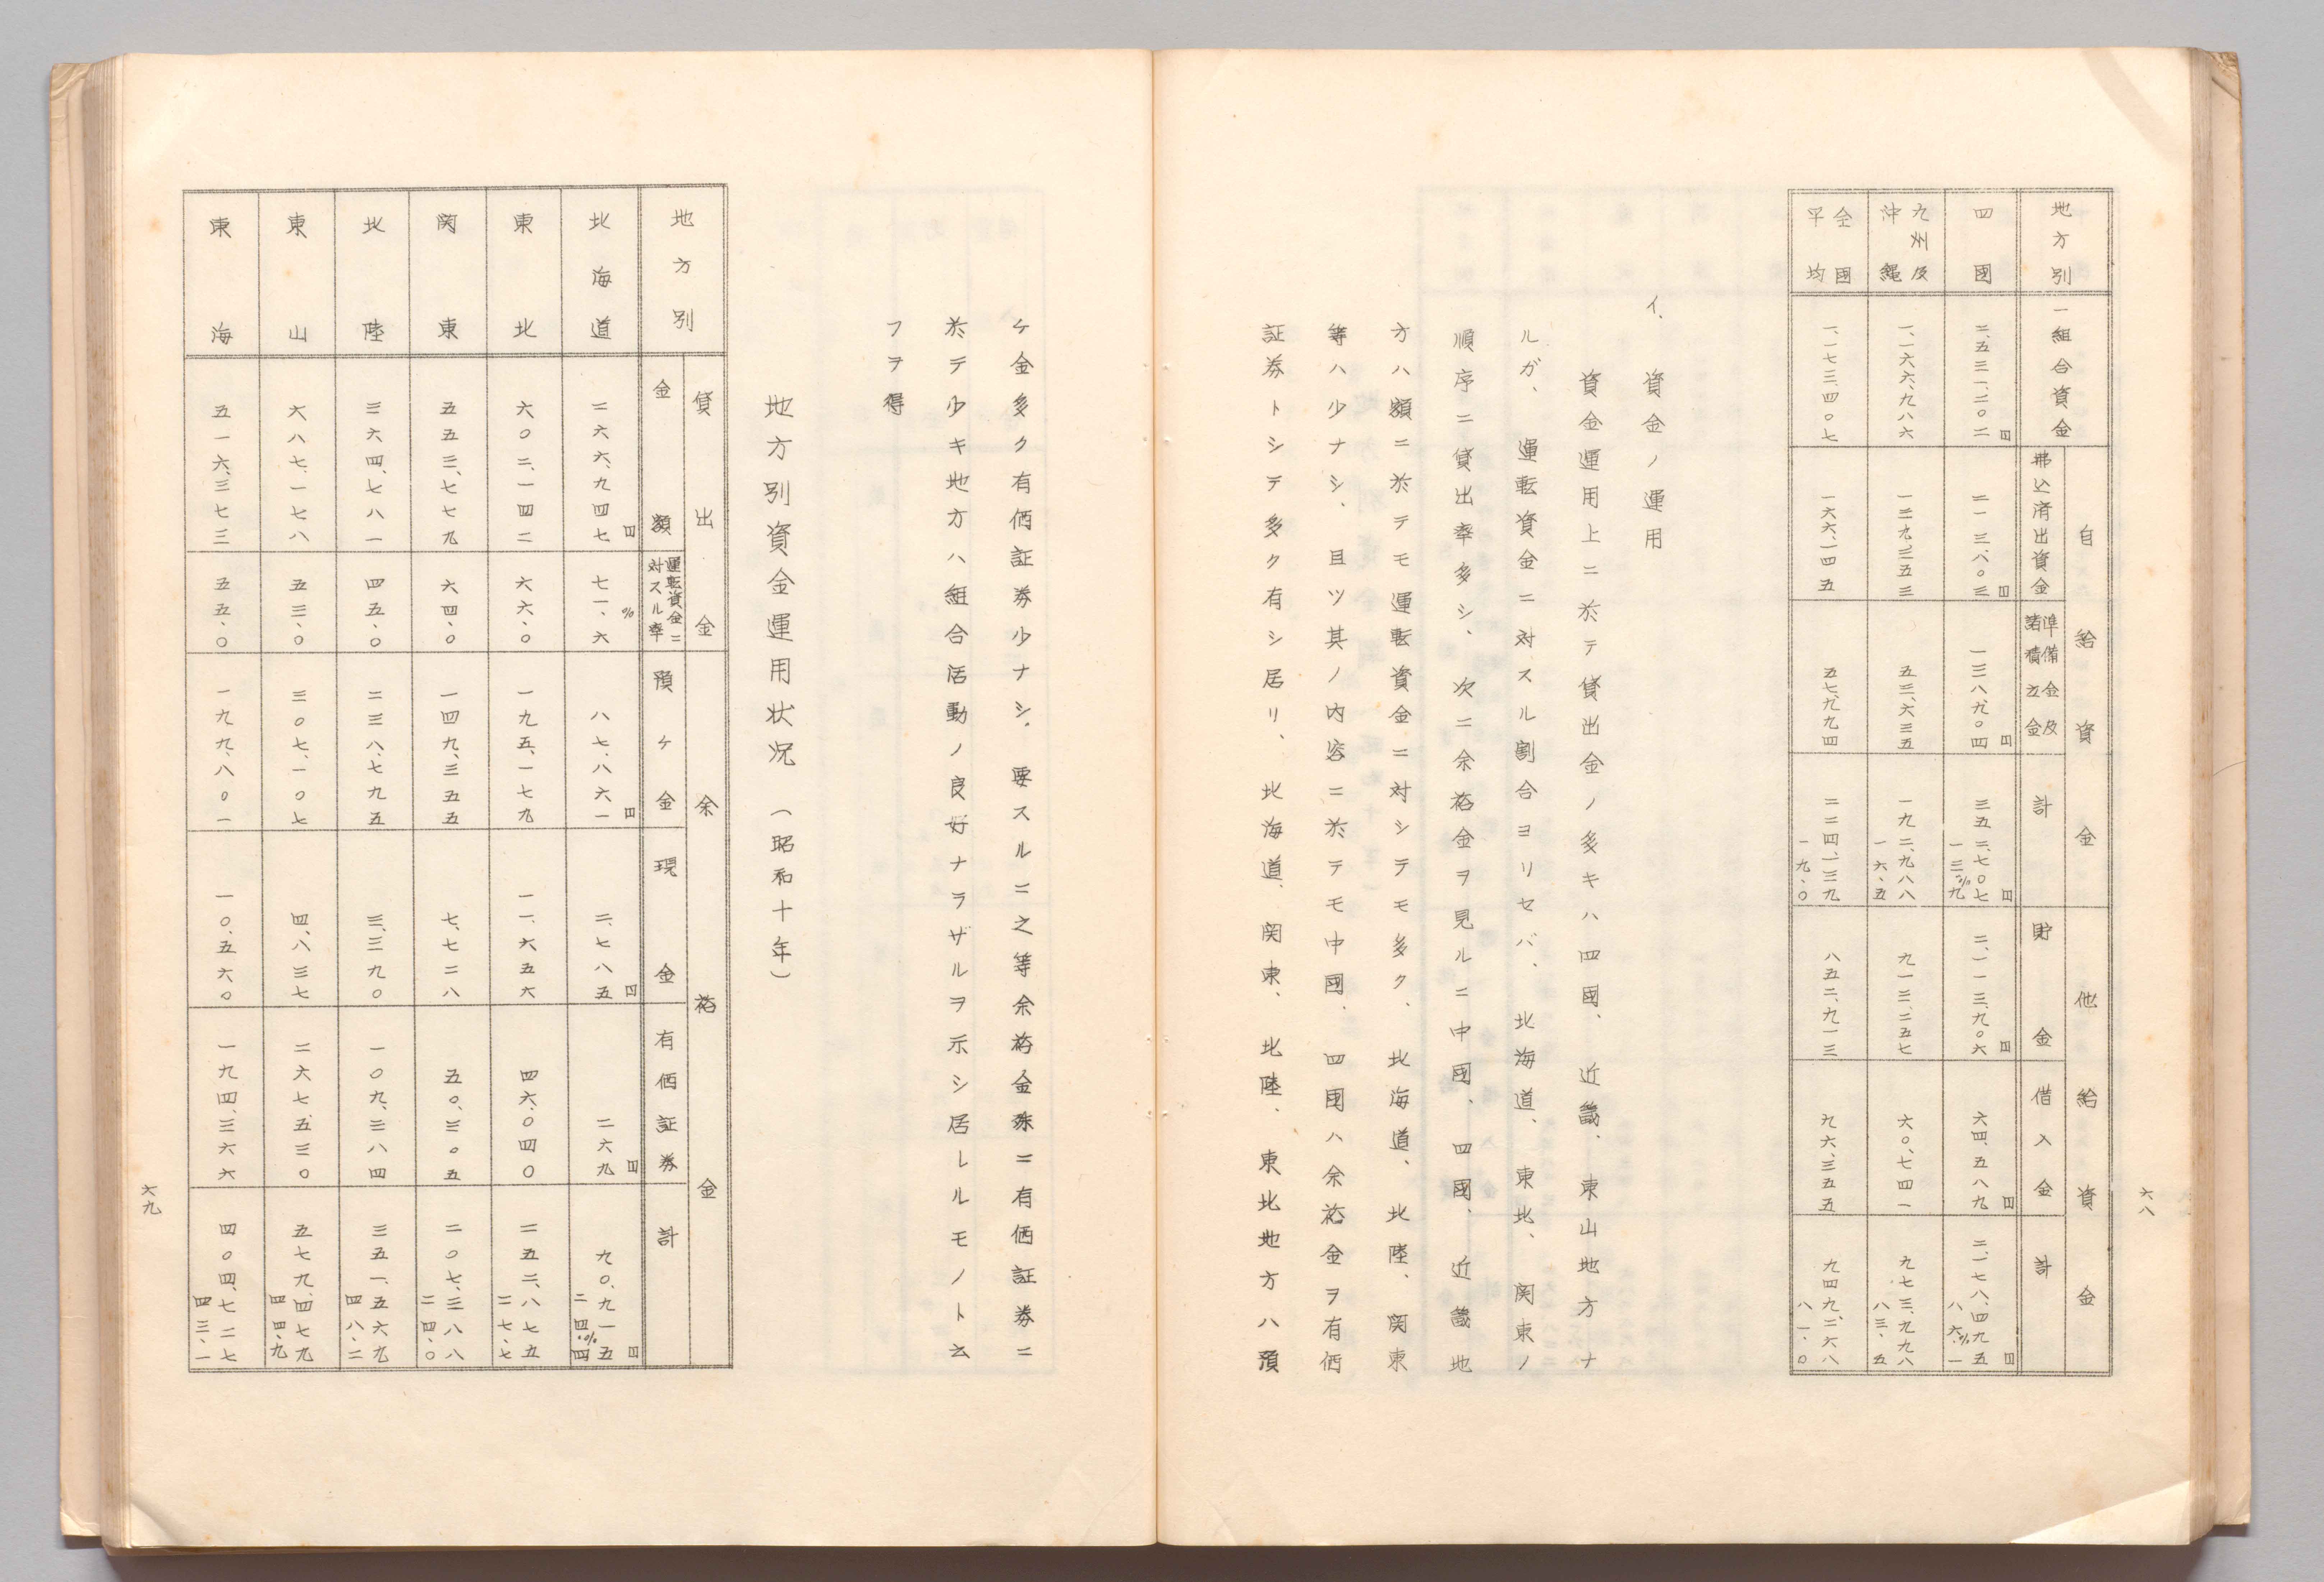 六八
地方別
一組合資金
自給資金
払込済出資金
準備金及
諸積立金
計
他給資金
貯金
借入金
計
四國
二、五三一、二〇二円
二一三、八〇三円
一三八、九〇四円
三五二、七〇七円
一三・九%
二、一一三、九〇六円
六四、五八九円
二、一七八、四九五円
八六・一%
九州及
沖縄
一、一六六、九八六
一三九、三五三
五三、六三五
一九二、九八八
一六・五
九一三、二五七
六〇、七四一
九七三、九九八
八三・五
全國
平均
一、一七三、四〇七
一六六、一四五
五七、九九四
二二四、一三九
一九・〇
八五二、九一三
九六、三五五
九四九、二六八
八一・〇
イ、資金ノ運用
資金運用上ニ於テ貸出金ノ多キハ四國、近畿、東山地方ナ
ルガ、運転資金ニ対スル割合ヨリセバ、北海道、東北、関東ノ
順序ニ貸出率多シ、次ニ余裕金ヲ見ルニ中國、四國、近畿地
方ハ額ニ於テモ運転資金ニ対シテモ多ク、北海道、北陸、関東
等ハ少ナシ、且ツ其ノ内容ニ於テモ中國、四國ハ余裕金ヲ有価
証券トシテ多ク有シ居リ、北海道、関東、北陸、東北地方ハ預
ケ金多ク有価証券少ナシ、要スルニ之等余裕金殊ニ有価証券ニ
於テ少キ地方ハ組合活動ノ良好ナラザルヲ示シ居レルモノト云
フヲ得
地方別資金運用状況（昭和十年）
地方別
貸出金
金額
運転資金ニ
対スル率
余裕金
預ケ金
現金
有価証券
計
北海道
二六六、九四七円
七一・六%
八七、八六一円
二、七八五円
二六九円
九〇、九一五円
二四・四%
東北
六〇二、一四二
六六・〇
一九五、一七九
一一、六五六
四六、〇四〇
二五二、八七五
二七・七
関東
五五三、七七九
六四・〇
一四九、三五五
七、七二八
五〇、三〇五
二〇七、三八八
二四・〇
北陸
三六四、七八一
四五・〇
二三八、七九五
三、三九〇
一〇九、三八四
三五一、五六九
四八・二
東山
六八七、一七八
五三・〇
三〇七、一〇七
四、八三七
二六七、五三〇
五七九、四七九
四四・九
東海
五一六、三七三
五五・〇
一九九、八〇一
一〇、五六〇
一九四、三六六
四〇四、七二七
四三・一
六九